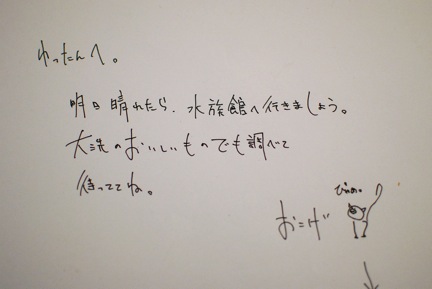 ゆったんへ。
明日晴れたら、水族館へ行きましょう。
大洗のおいしいものでも調べて
待っててね。
おこげ